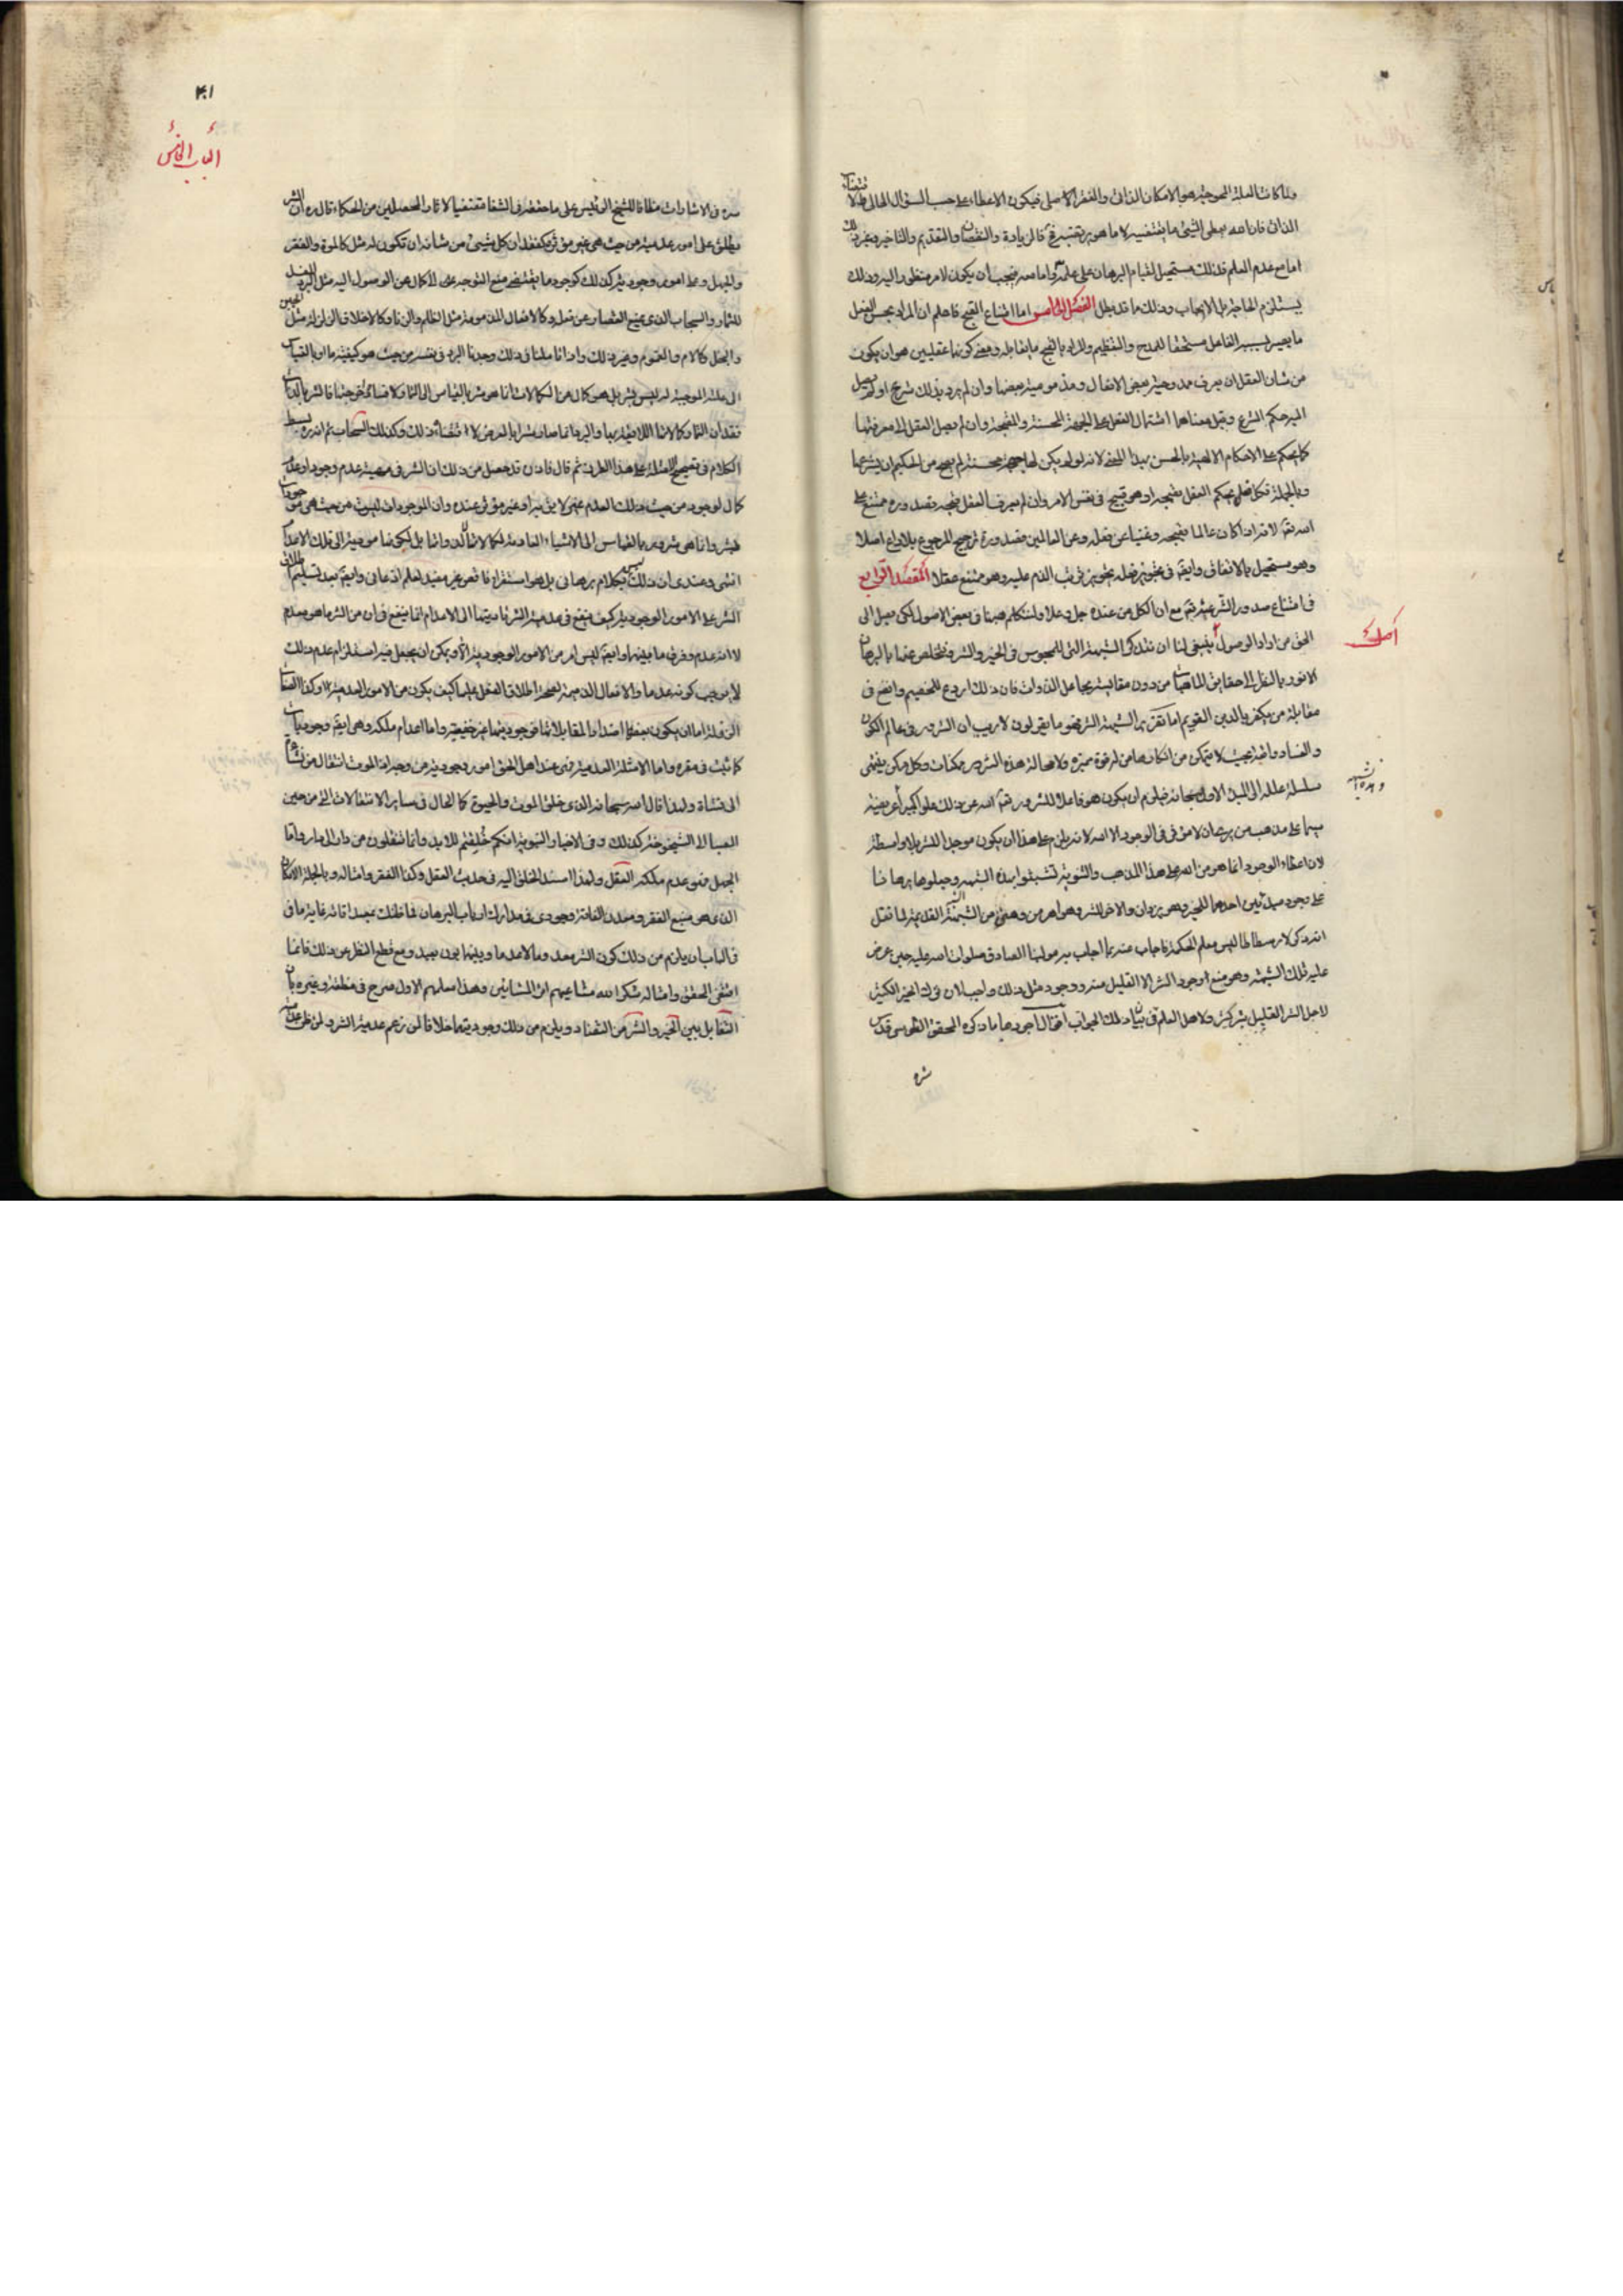 ولما كانت العلة المحوجة هو الامكان الذاتى والفقر الاصلى فيكون الاعطاء على حسب السؤال الحالى
الذاتى فان الله يعطى الشئ ما يقتضيه لا ما هو يقتضيه كالزيادة والنقصان والتقديم والتاخير وغير ذلك
اما مع عدم العلم فذلك مستحيل لقيام البرهان على علمه واما معه فيجب أن يكون لامر منظور اليه وذلك
يستلزم الحاجة الايجاب وذلك ما قد بطل الفصل الخامس اما امتناع القبح فاعلم ان المراد بحسن الفعل
ما يصير بسببه الفاعل مستحقا للمدح والتعظيم والمراد بالقبح ما يقابله ومعنى كونهما عقليين هو ان يكون
من شان العقل ان يعرف ممدوحية بعض الافعال ومذمومية بعضها وان لم يرد بذلك شرع او لم يصل
اليه حكم الشرع وقيل معناهما اشتمال الفعل على الجهة المحسنة والمقبحة وان لم يصل العقل الى معرفتها
كما يحكم على الاحكام الالهية بالحسن بهذا المعنى لانه لو لم يكن لها جهة محسنة لم يصح من الحكيم ان يشرعها
وبالجملة فكل فعل يحكم العقل بقبحه او هو قبيح فى نفس الامر وان لم يعرف العقل قبحه فصدوره ممتنع على
الله تعالى لانه اذا كان عالما بقبحه وغنيا عن فعله وعن العالمين فصدوره ترجيح المرجوح بلا داع اصلا
وهو مستحيل بالاتفاق وايضا فى تجويز فعله تجويز ترتب الذم عليه وهو ممتنع عقلا المقصد الرابع
فى امتناع صدور الشر عنه تعالى مع ان الكل من عنده جل وعلا ولنتكلم هيهنا فى بعض الاصول لكى يصل الى
الحق من اراد الوصول ينبغى لنا ان نذكر الشبهة التى للمجوس فى الخير والشر ونتخلص عنها بالبرهان
الانور بالنظر الى حقايق الماهيات من دون مقايسة بجاعل الذوات فان ذلك اردع للخصيم وانفع فى
مقابلة من يكفر بالدين القويم اما تقرير الشبهة الشر فهو ما يقولون لا ريب ان الشرور فى عالم الكون
والفساد واقعة بحيث لا يتمكن من انكارها من له قوة مميزة ولا محالة هذه الشرور ممكنات وكل ممكن ينتهى
سلسلة علله الى المبدأ الاول سبحانه فيلزم ان يكون هو فاعلا للشرور تعالى الله عن ذلك علوا كبيرا
سيما على مذهب من يرى ان لا مؤثر فى الوجود الا الله لانه يلزم على هذا ان يكون موجد الشر بلا واسطة
لان اعطاء الوجود انما هو من الله على هذا المذهب والثنوية تشبثوا بهذه الشبهة وجعلوها برهانا
على وجود مبدئين احدهما للخير وهو يزدان والاخر للشر وهو اهرمن وهى من الشبهة القديمة كما نقل
انه ذكر لارسطاطاليس معلم الحكمة فاجاب عنه بما اجاب به مولينا الصادق صلوات الله عليه حين عرض
عليه تلك الشبهة وهو منع وجود الشر الا القليل منه ووجود مثل ذلك واجب لان ترك الخير الكثير
لاجل الشر القليل شر كثير ولاهل العلم فى بيان ذلك الجواب اقوال اجودها ما ذكره المحقق الطوسى قدس
سره
اصل
٤٠١
الباب الخامس
سره فى الاشارات مطابقا للشيخ الرئيس على ما حققه فى الشفا مقتفيا لاثار المحصلين من الحكماء قال ره ان الشر
يطلق على امور عدمية من حيث هى غير مؤثرة كفقدان كل شيئ من شانه ان تكون له مثل كالموت والفقر
والجهل وعلى امور وجودية كذلك كوجود ما يقتضى منع المتوجه الى الكمال عن الوصول اليه مثل البرد المفسد
للثمار والسحاب الذى يمنع القصار عن فعله وكالافعال المذمومة مثل الظلم والزنا وكالاخلاق الرذيلة مثل الجبن
والبخل وكالالام والغموم وغير ذلك واذا تاملنا فى ذلك وجدنا البرد فى نفسه من حيث هو كيفية ما او بالقياس
الى علته الموجبة له ليس بشر بل هو كمال من الكمالات انما هو شر بالقياس الى الثمار لافساده امزجتها فالشر بالذات
فقدان الثمار كمالاتها اللائقة بها والبرد انما صار شرا بالعرض لاقتضائه ذلك وكذلك السحاب ثم انه ره بسط
الكلام فى تصحيح الامثلة على هذا الطريق ثم قال فاذن قد حصل من ذلك ان الشر فى مهيته عدم وجود او عدم
كمال لوجود من حيث ذلك العدم غير لايق به او غير مؤثر عنده وان الموجودات ليست من حيث هى موجودات
بشر وانما هى شرور بالقياس الى الاشياء العادمة لكمالاتها لا لذواتها بل لكونها مودية الى تلك الاعدام
انتهى وعندى ان ذلك ليس بكلام برهانى بل هو استقراء ناقص غير مفيد لعلم اذعانى وايضا بعد تسليم اطلاق
الشر على الامور الوجودية كيف ينفع فى عدمية الشر تاديتها الى الاعدام انما ينفع فى ان من الشر ما هو معدم
لا انه عدم وفرق ما بينهما وايضا ليس امر من الامور الوجودية الا ويمكن ان يجعل فيه استلزام عدم وذلك
لا يوجب كونه عدما والافعال الذميمة لصحة اطلاق الفعل عليها كيف يكون من الامور العدمية وكذا الصفات
الرذيلة اما ان يكون بعضها اضدادا لمقابلاتها فوجوديتها غير خفية واما اعدام ملكة وهى ايضا وجوديات
كما ثبت فى مقره واما الامثلة العدمية فهى عند اهل الحق امور وجودية من وجه اذ الموت انتقال من نشاة
الى نشاة ولهذا قال الله سبحانه الذى خلق الموت والحيوة كما الحال فى ساير الانتقالات التى من حين
الصبا الى الشيخوخة كذلك وفى الاخبار النبوية انكم خُلِقتم للابد وانما تنتقلون من دار الى دار واما
الجهل فهو عدم ملكة العقل ولهذا اسند الخلق اليه فى حديث العقل وكذا الفقر وامثاله وبالجملة الامكان
الذى هو منبع الفقر ومعدن الفاقة وجودى فى مدارك ارباب البرهان فما ظنك بمبدا اثاره غاية ما فى
فى الباب ان يلزم من ذلك كون الشر معدوما لا عدما وبينهما بون بعيد ومع قطع النظر عن ذلك فانما
اقتفى المحقق وامثاله شكر الله مساعيهم اثر المشائين وهذا معلمهم الاول صرح فى منطقه وغيره بان
التقابل بين الخير والشر من التضاد ويلزم من ذلك وجوديتهما خلافا لمن زعم عدمية الشر ولمن ظن